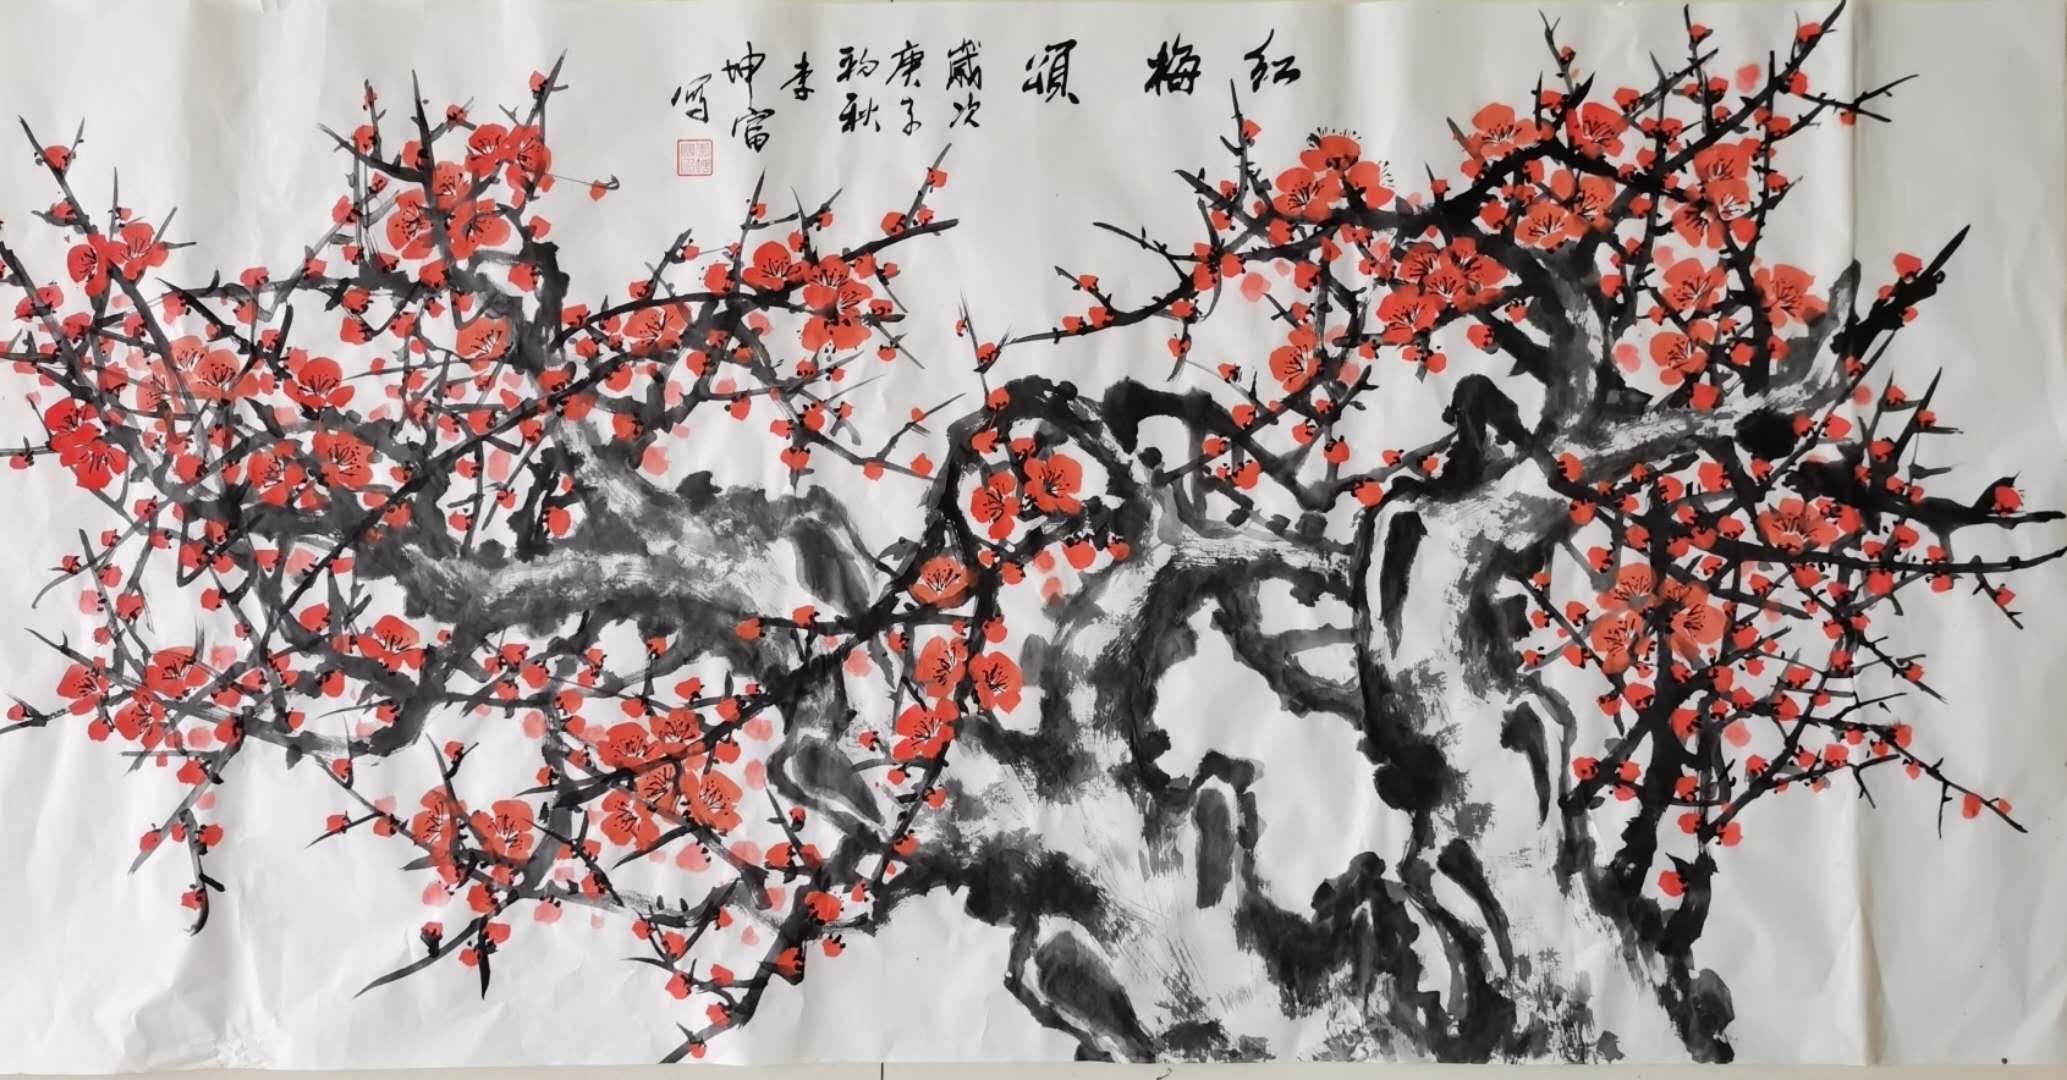 红梅颂
岁次
庚子
初秋
李
坤富
写